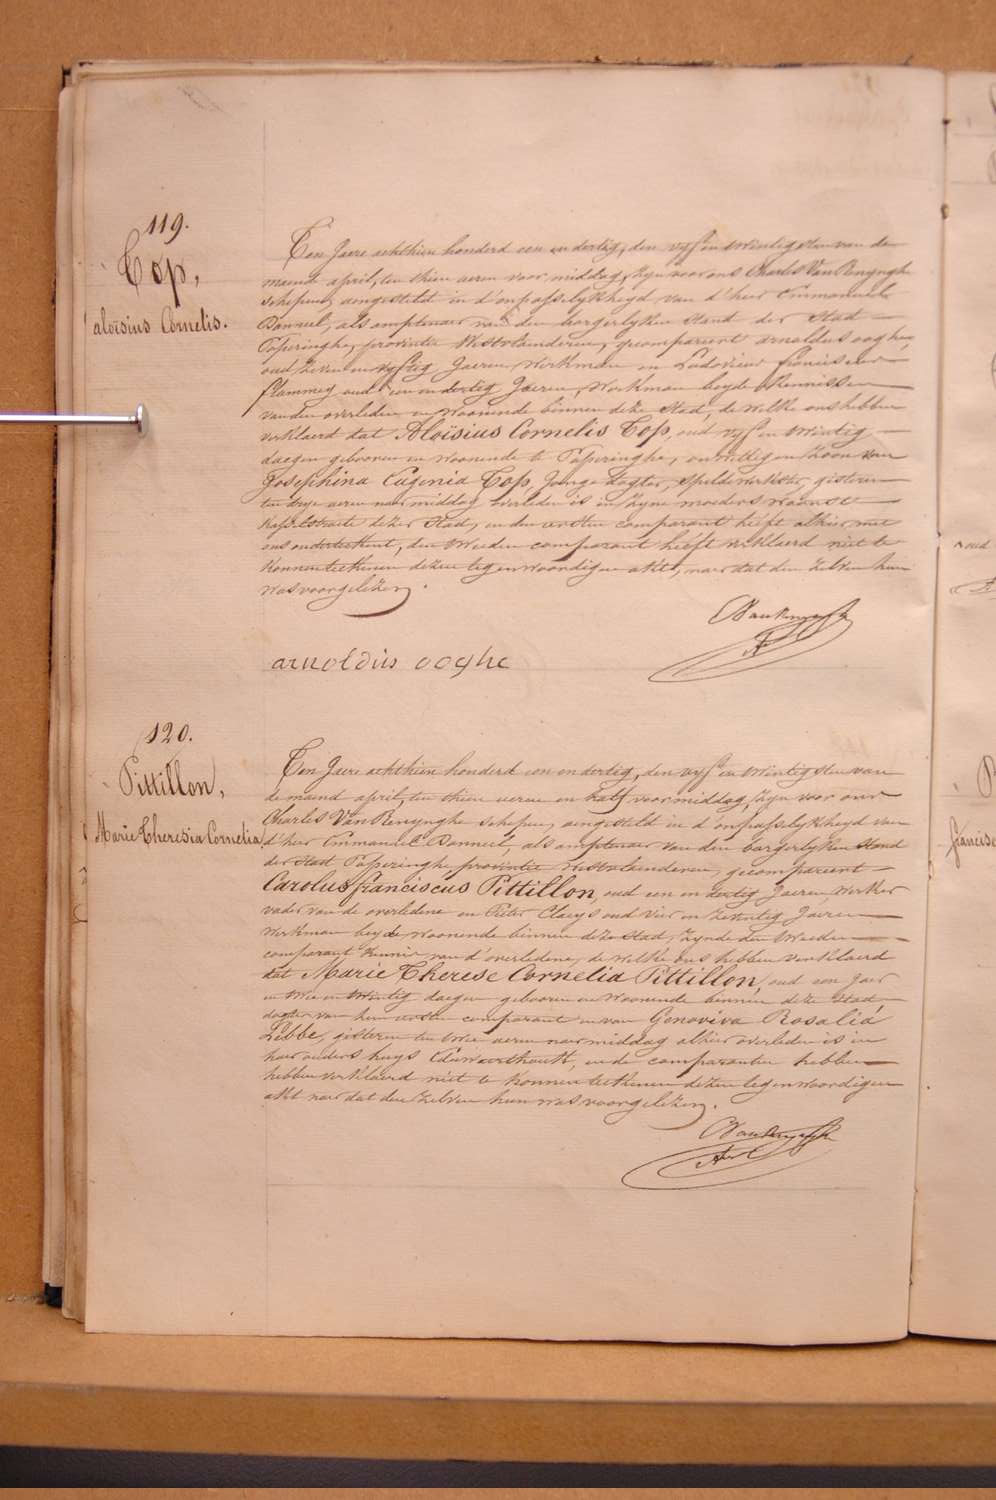 119.
Top,
aloïsius Cornelis.
Ten Jaere achthien honderd een en dertig, den vyf en twintigsten van de
maend april, ten thien ueren voor middag, zyn voor ons Charles Van Renynghe
schepen, aengesteld in d'onpasselykheyd van d'heer Emmanuel
Banneel, als amptenaer van den borgerlyken stand der Stad
Poperinghe, provintie Westvlaenderen, gecompareert arnoldus ooghe,
oud zeven en vyftig Jaeren, werkman en Ludovicus franciscus
flammey oud een en dertig Jaeren, Werkman beyde kennissen
van den overleden en woonende binnen deze Stad, de welke ons hebben
verklaerd dat Aloïsius Cornelis Top, oud vyf en twintig
daegen gebooren en woonende te Poperinghe, onwettigen zoon van
Josephina Eugenia Top, Jonge dogter, spelde werkster, gisteren
ten drye ueren naer middag overleden is in zyne moeders woonste
Kapelstraete dezer Stad, en den eersten comparant heeft alhier met
ons onderteekent, den tweeden comparant heeft verklaerd niet te
konnen teekenen dezen tegenwoordigen akte, naer dat den zelven hun
was voorgelezen.
C Van Renynghe
arnoldus ooghe
120.
Pittillon,
Marie Theresia Cornelia
Ten Jaere achthien honderd een en dertig, den vyf en twintigsten van
de maend april, ten thien ueren en half voor middag, zyn voor ons
Charles Van Renynghe schepen, aengesteld in d'onpasselykheyd van
d'heer Emmanuel Banneel, als amptenaer van den borgerlyken stand
der Stad Poperinghe provintie Westvlaenderen, gecompareert
Carolus franciscus Pittillon, oud een en dertig Jaeren, werker
vader van de overledene en Pieter Claeys oud vier en zeventig Jaeren
Werkman beyde woonende binnen deze Stad, zynde den tweeden
comparant kennis van d'overledene, de welke ons hebben verklaerd
dat Marie Therese Cornelia Pittillon, oud een Jaer
en twee en twintig daegen gebooren en woonende binnen deze Stad
dogter van hun eersten comparant en van Genoviva Rosalia
Lebbe, gisteren ten twee ueren naer middag alhier overleden is in
haer ouders huys en de comparanten hebben
hebben verklaerd niet te konnen teekenen dezen tegenwoordigen
akt naer dat den zelven hun was voorgelezen.
C Van Renynghe